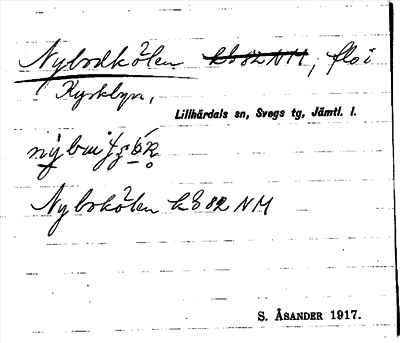 Nybodkölen k3 82 NM, flo i
Kyrkbyn,
Lillhärdals sn, Svegs tg, Jämtl. l.
Nybokölen k3 82 NM
S. ÅSANDER 1917.